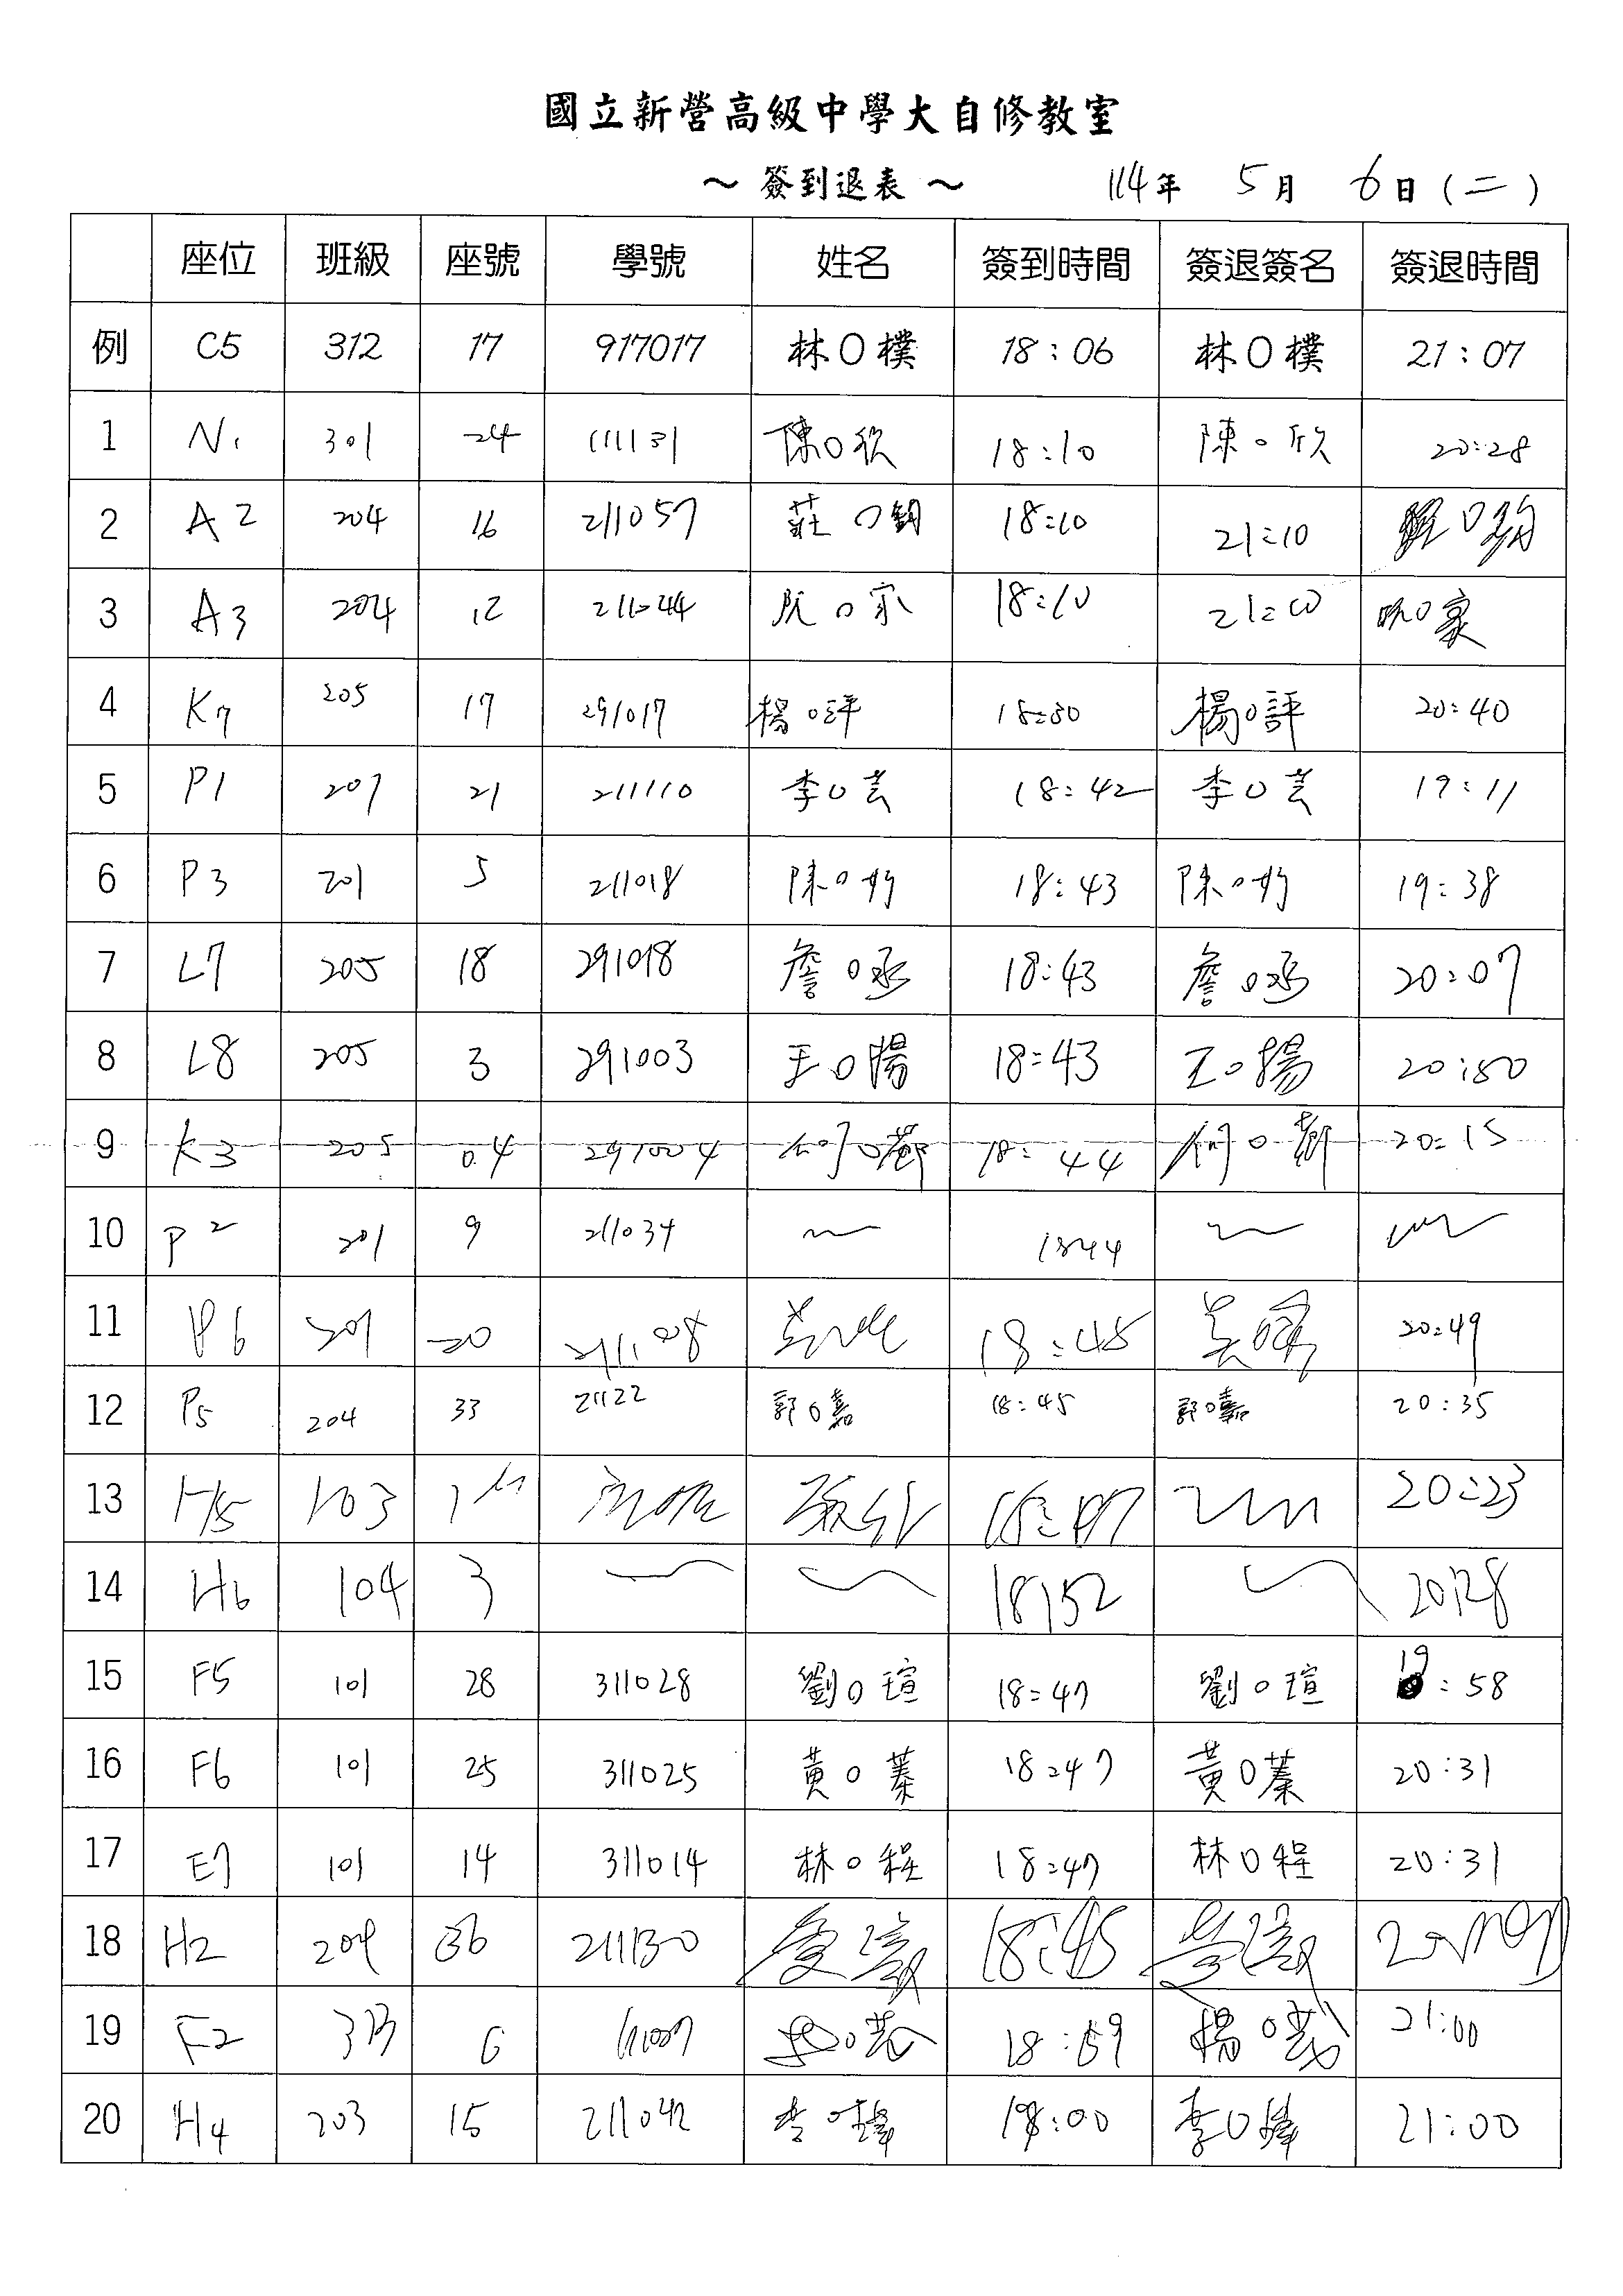 國立新營高級中學大自修教室
～ 簽到退表 ～ 114年 5月 6日(二)
座位 班級 座號 學號 姓名 簽到時間 簽退簽名 簽退時間
例 C5 312 17 917017 林O樸 18:06 林O樸 21:07
1 N1 301 24 111131 陳O欣 18:10 陳O欣 20:28
2 A2 204 16 211057 莊O鈞 18:10 21:10
3 A3 204 12 211044 阮O家 18:10 21:00 阮O家
4 K7 205 17 291017 楊O評 18:30 楊O評 20:40
5 P1 207 21 211110 李O芸 18:42 李O芸 19:11
6 P3 201 5 211018 陳O竹 18:43 陳O竹 19:38
7 L7 205 18 291018 詹O丞 18:43 詹O丞 20:07
8 L8 205 3 291003 王O陽 18:43 王O揚 20:50
9 K3 205 04 291004 何O 18:44 何O 20:15
10 P2 201 9 211034 1844
11 P6 201 20 18:45 20:49
12 P5 204 33 21122 郭O嘉 18:45 郭O嘉 20:35
13 H5 103 20:23
14 H6 104 3 18:52 20:28
15 F5 101 28 311028 劉O瑄 18:47 劉O瑄 19:58
16 F6 101 25 311025 黃O蓁 18:47 黃O蓁 20:31
17 E7 101 14 311014 林O程 18:47 林O程 20:31
18 H2 204 36 211130 18:45
19 F2 313 6 18:59 楊O 21:00
20 H4 203 15 211042 李O鋒 18:00 李O鋒 21:00